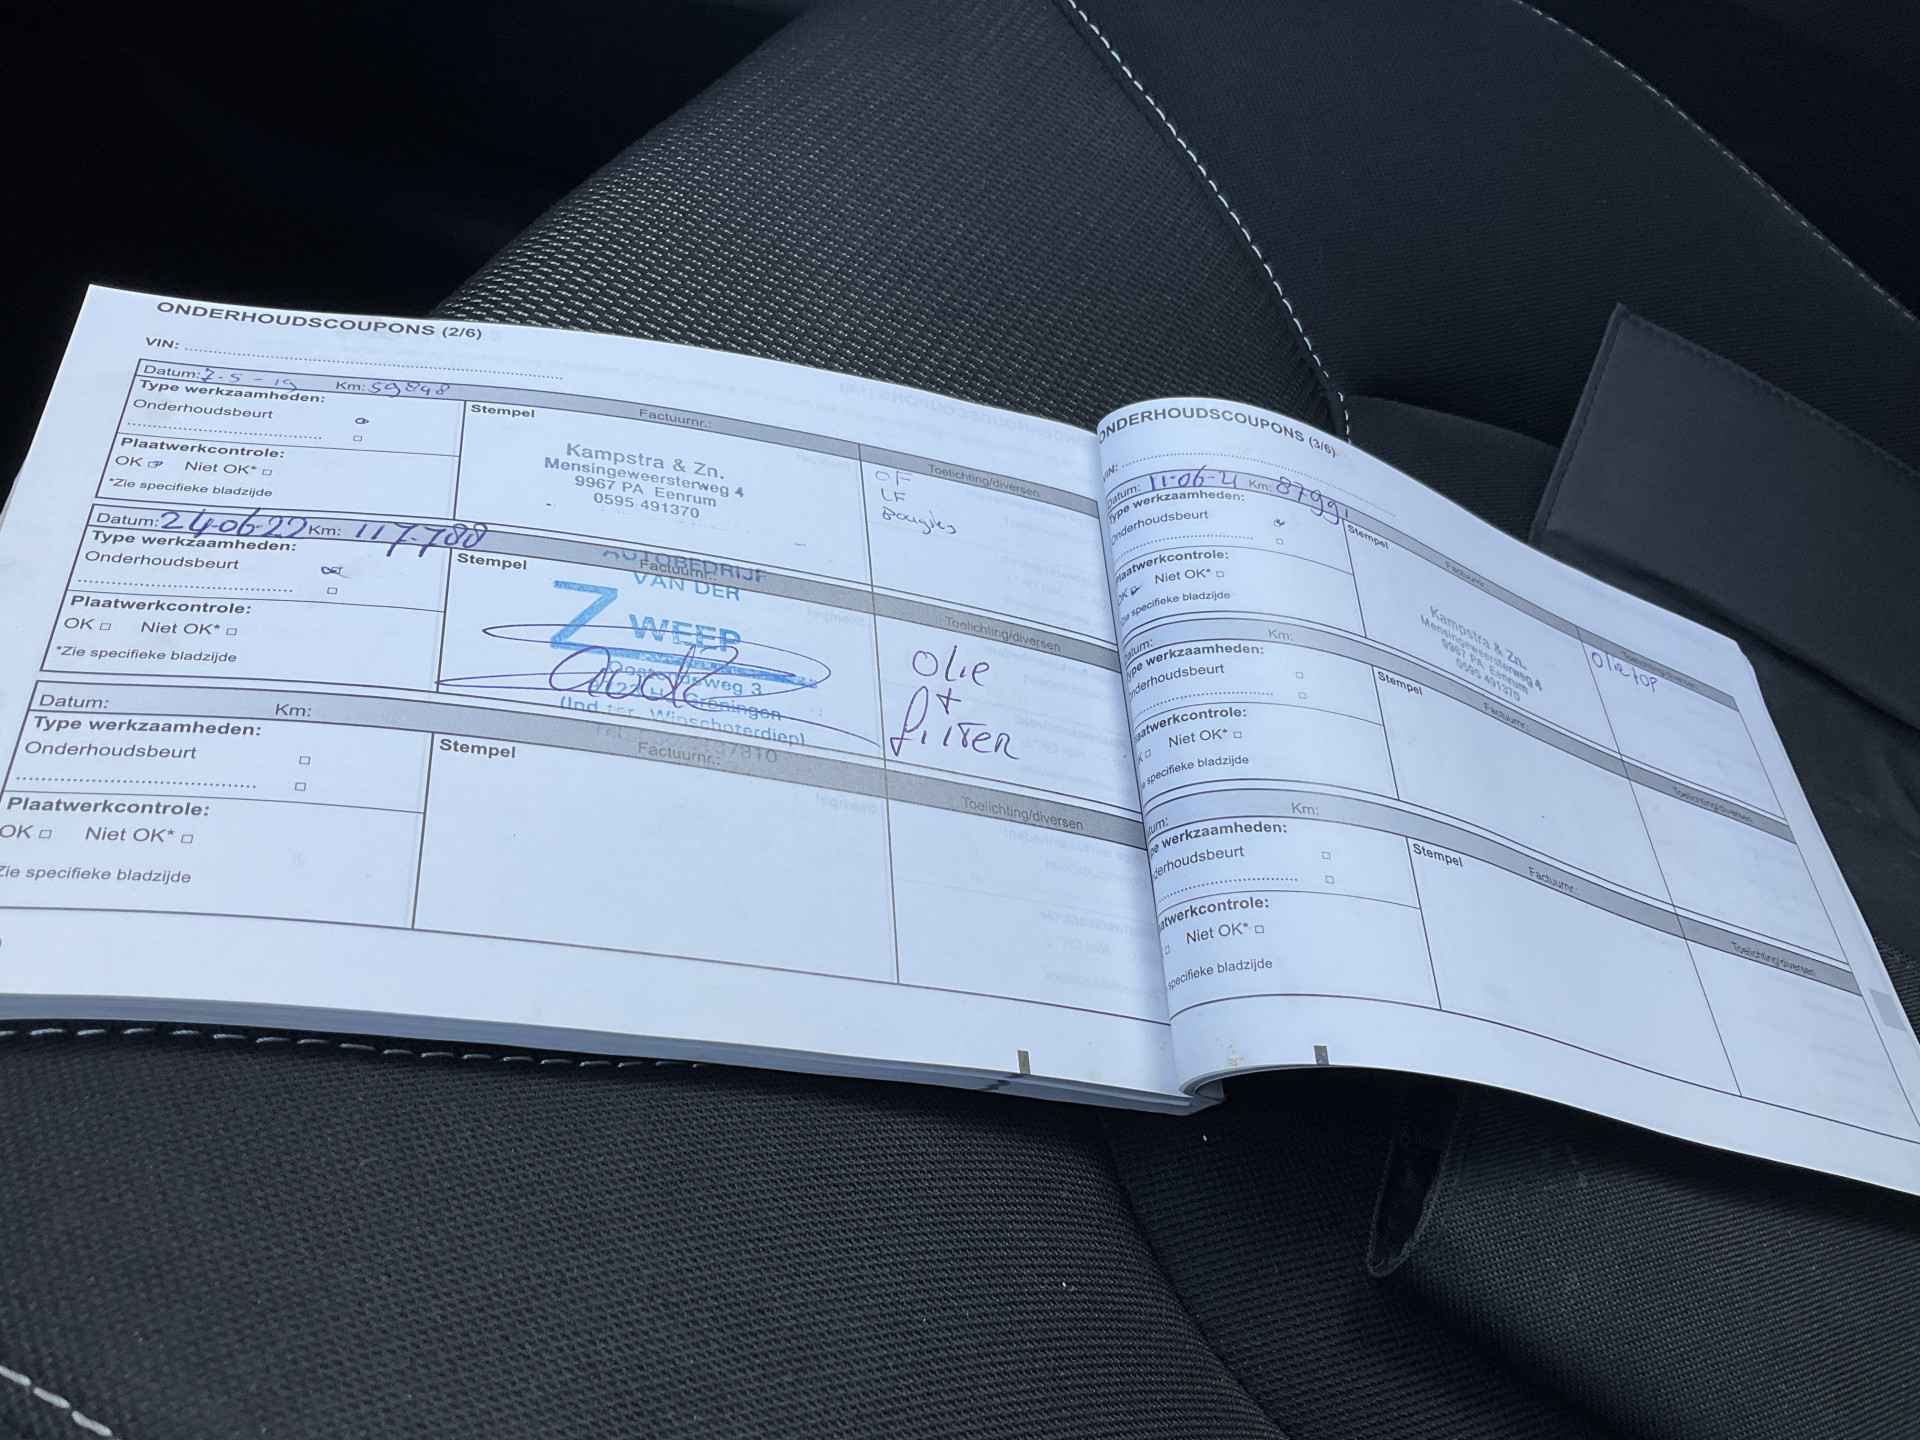 ONDERHOUDSCOUPONS (2/6)
VIN:
Datum: 7-5-19 Km: 59848
Type werkzaamheden:
Onderhoudsbeurt
Plaatwerkcontrole:
OK Niet OK*
*Zie specifieke bladzijde
Stempel Factuurnr.:
Kampstra & Zn.
Mensingeweersterweg 4
9967 PA Eenrum
0595 491370
Toelichting/diversen
OF
LF
Bougies
Datum: 24-06-22 Km: 117.788
Type werkzaamheden:
Onderhoudsbeurt
Plaatwerkcontrole:
OK Niet OK*
*Zie specifieke bladzijde
Stempel Factuurnr.:
AUTOBEDRIJF
VAN DER
ZWEEP
weg 3
Groningen
(Ind.ter. Winschoterdiep)
Toelichting/diversen
Olie
+
filter
Datum: Km:
Type werkzaamheden:
Onderhoudsbeurt
Plaatwerkcontrole:
OK Niet OK*
Zie specifieke bladzijde
Stempel Factuurnr.:
Toelichting/diversen
ONDERHOUDSCOUPONS (3/6)
VIN:
Datum: 11-06-21 Km: 87991
Type werkzaamheden:
Onderhoudsbeurt
Plaatwerkcontrole:
OK Niet OK*
Zie specifieke bladzijde
Stempel Factuurnr.:
Kampstra & Zn.
Mensingeweersterweg 4
9967 PA Eenrum
0595 491370
Toelichting/diversen
Datum: Km:
Type werkzaamheden:
Onderhoudsbeurt
Plaatwerkcontrole:
K Niet OK*
specifieke bladzijde
Stempel Factuurnr.:
Toelichting/diversen
tum: Km:
pe werkzaamheden:
derhoudsbeurt
atwerkcontrole:
Niet OK*
specifieke bladzijde
Stempel Factuurnr.:
Toelichting/diversen